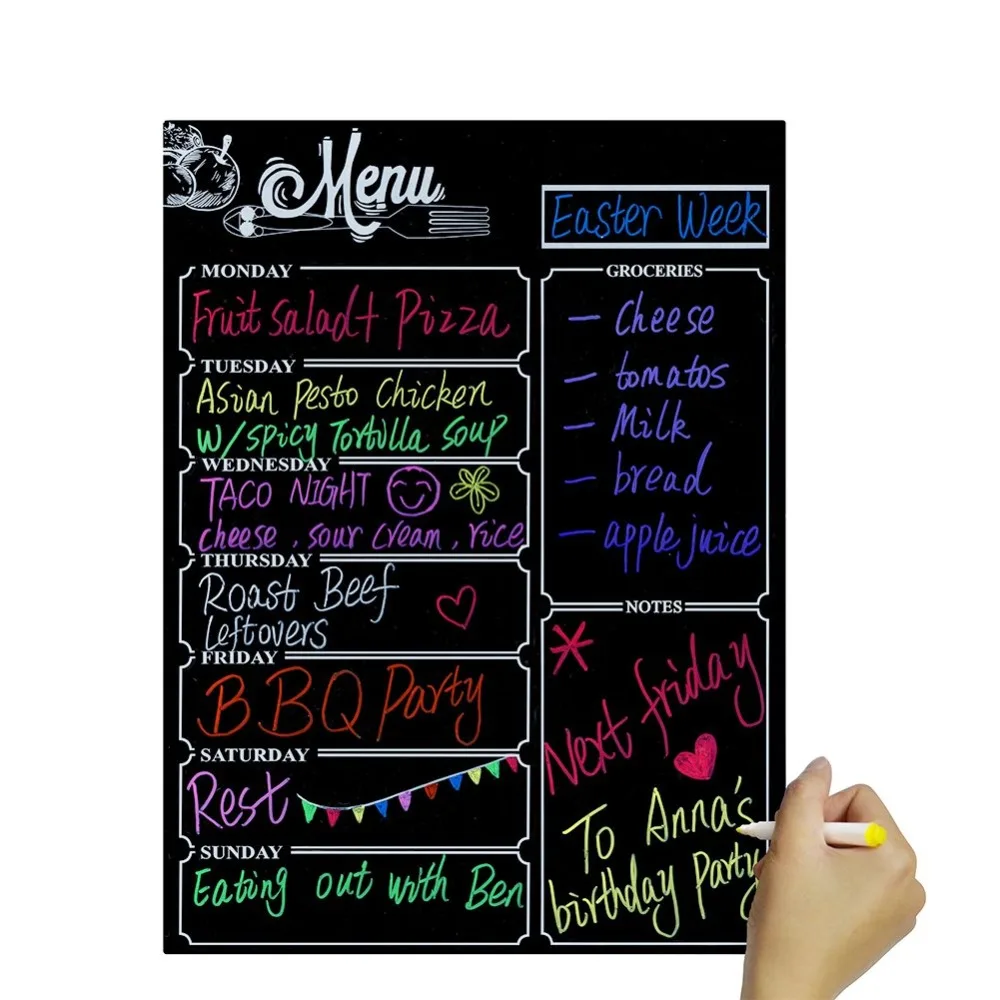 Menu
Easter Week
MONDAY
Fruit Salad+ Pizza
TUESDAY
Asian Pesto Chicken
W/Spicy Tortilla Soup
WEDNESDAY
TACO NIGHT
cheese, sour cream, rice
THURSDAY
Roast Beef
Leftovers
FRIDAY
BBQ Party
SATURDAY
Rest
SUNDAY
Eating out with Ben
GROCERIES
- Cheese
- tomatos
- Milk
- bread
- apple juice
NOTES
* Next friday
To Anna's
birthday Party